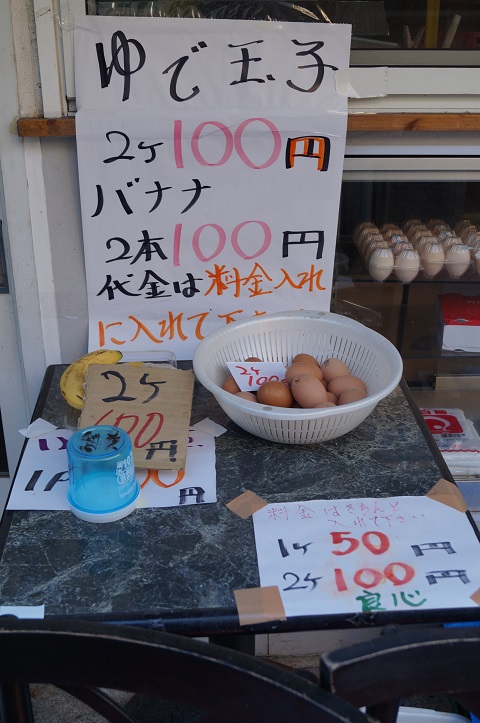 ゆで玉子
2ヶ100円
バナナ
2本100円
代金は料金入れ
に入れて下さ
2ヶ
100
2ケ
100円
1P
円
料金はきちんと
入れて下さい
1ヶ50円
2ヶ100円
良心